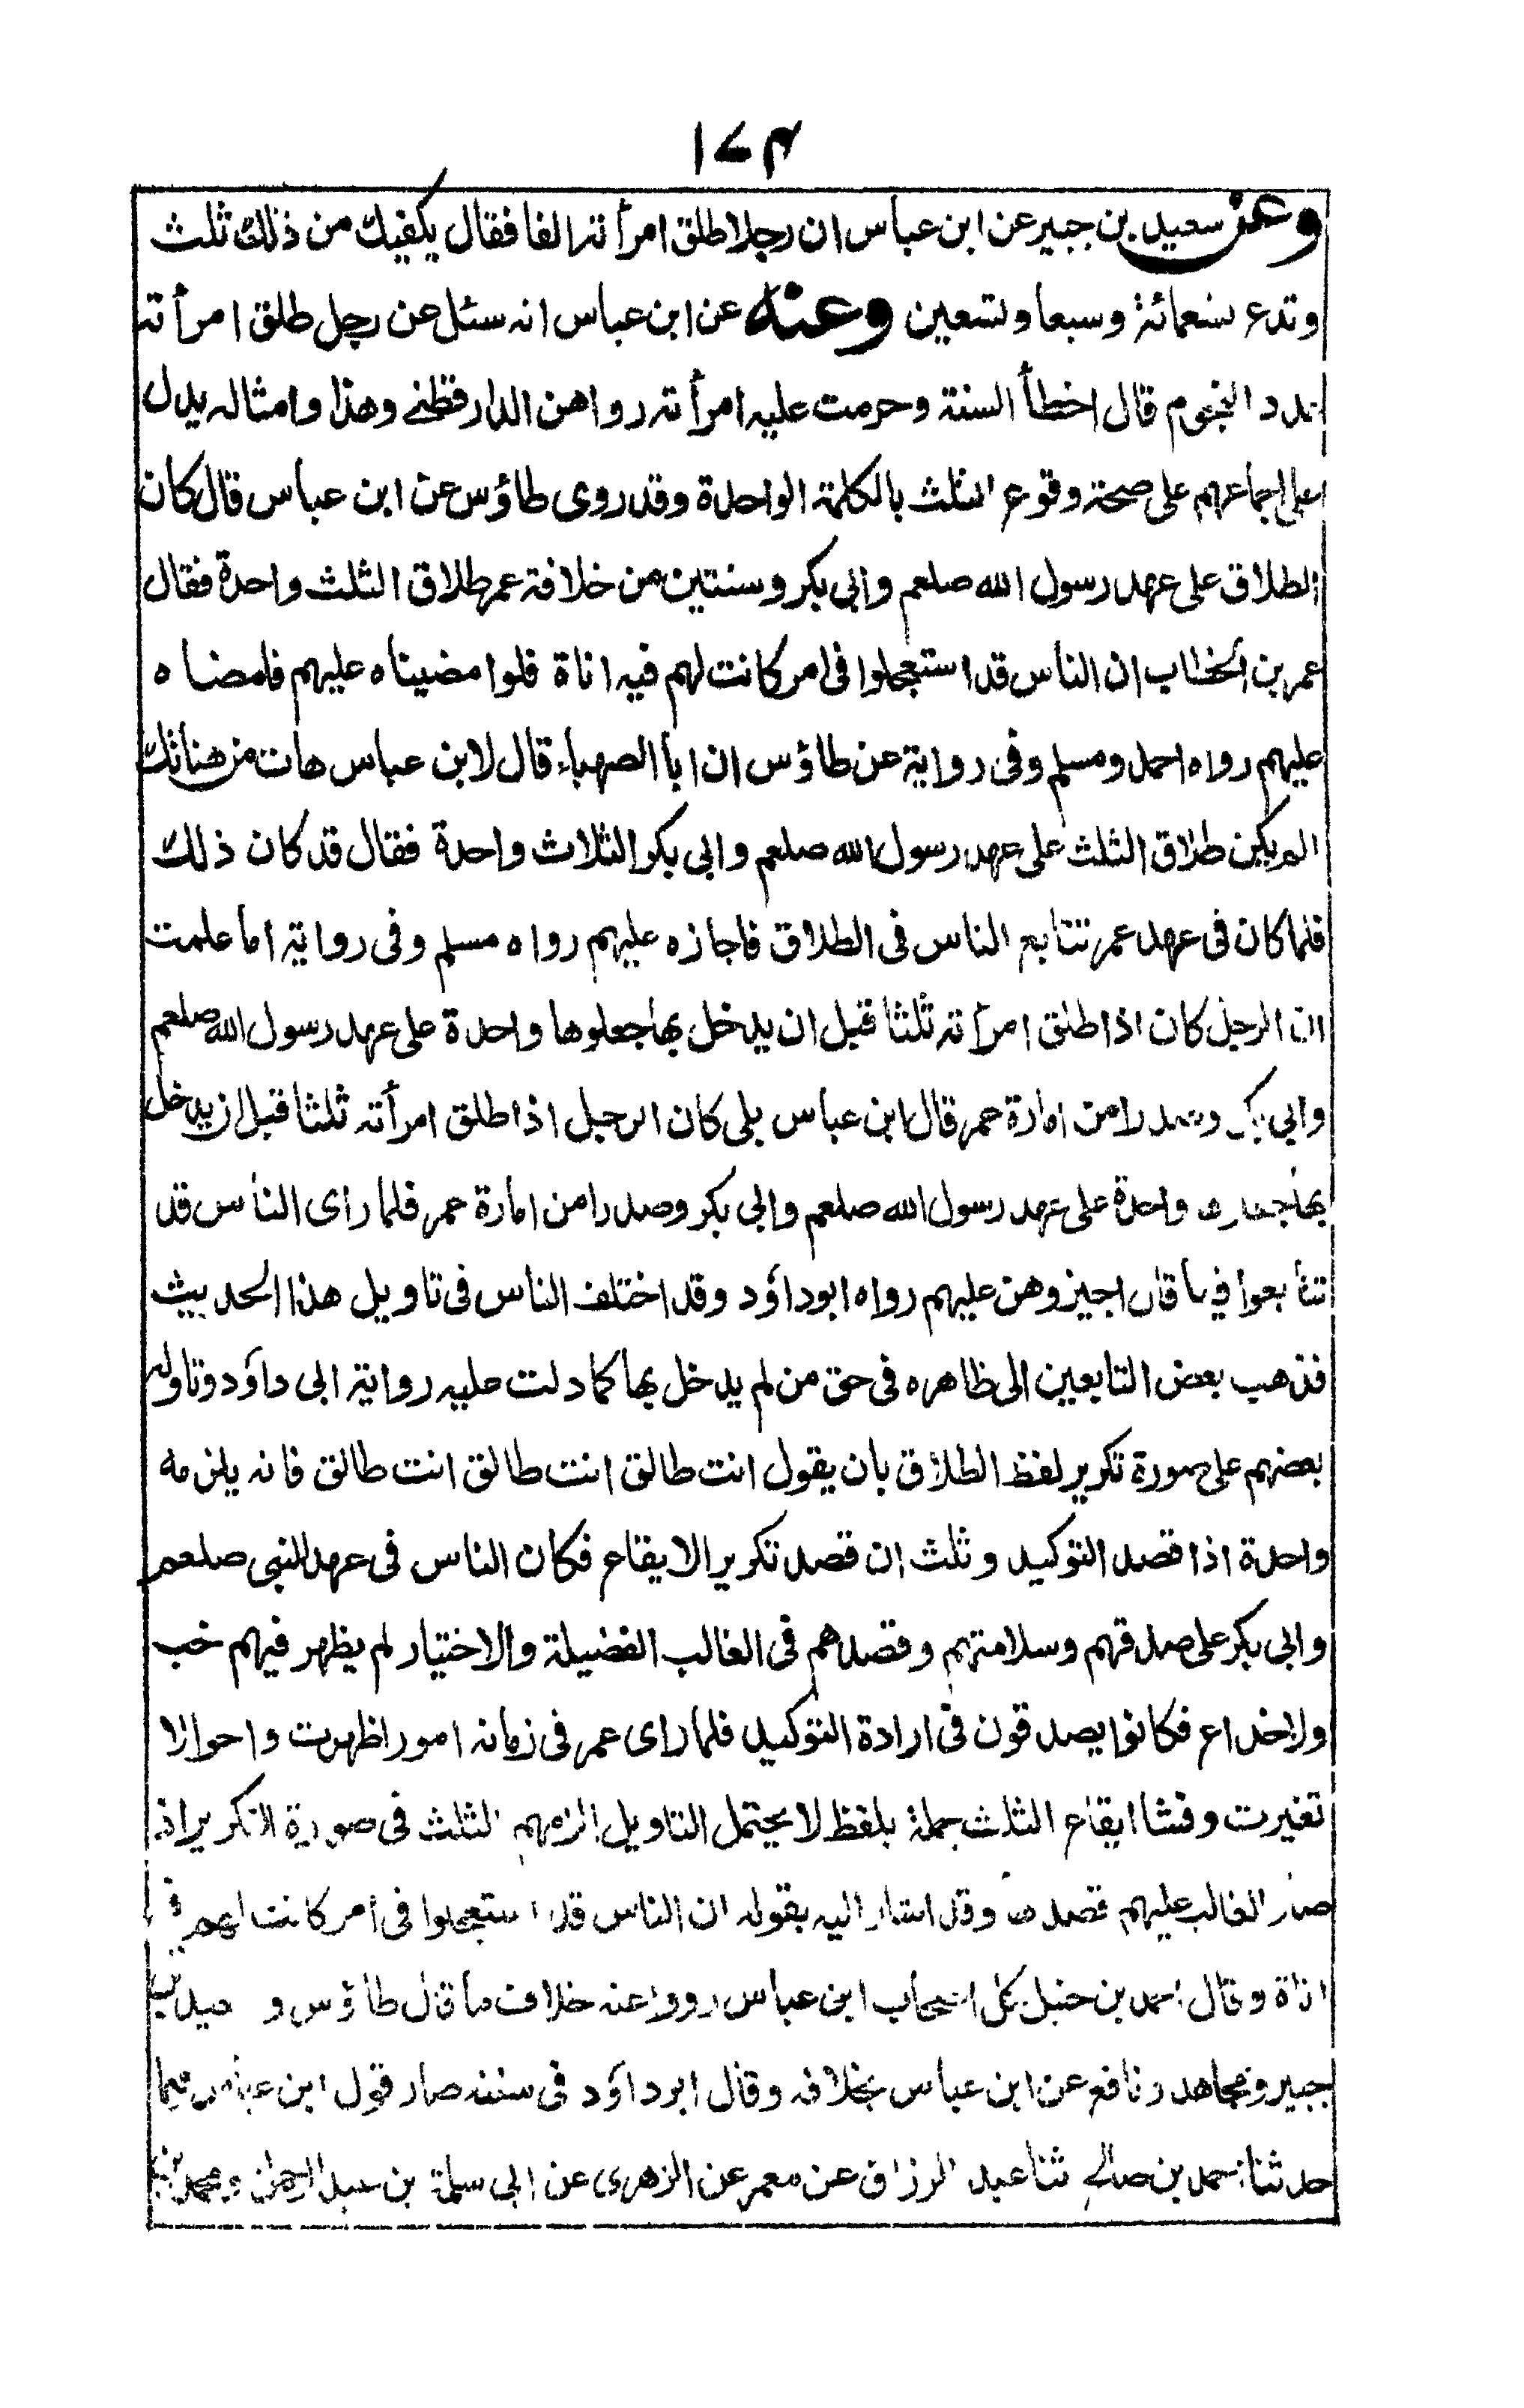 ۱۷۴
وعن سعيد بن جبير عن ابن عباس ان رجلا طلق امرأته الفا فقال يكفيك من ذلك ثلث
وتدع تسعمائة وسبعا وتسعين وعنه عن ابن عباس انه سئل عن رجل طلق امرأته
عدد النجوم قال اخطأ السنة وحرمت عليه امرأته رواهن الدارقطنے وهذا وامثاله يدل
على اجماعهم على صحة وقوع الثلث بالكلمة الواحدة وقد روى طاؤس عن ابن عباس قال كان
الطلاق على عهد رسول الله صلعم وابى بكر وسنتين من خلافة عمر طلاق الثلث واحدة فقال
عمر بن الخطاب ان الناس قد استعجلوا فى امر كانت لهم فيه اناة فلوا مضيناه عليهم فامضاه
عليهم رواه احمد ومسلم وفى رواية عن طاؤس ان ابا الصهباء قال لابن عباس هات من هناتك
الم يكن طلاق الثلث على عهد رسول الله صلعم وابى بكر الثلاث واحدة فقال قد كان ذلك
فلما كان فى عهد عمر تتابع الناس فى الطلاق فاجازه عليهم رواه مسلم وفى رواية اما علمت
ان الرجل كان اذا طلق امرأته ثلثا قبل ان يدخل بها جعلوها واحدة على عهد رسول الله صلعم
وابى بكر وصدرا من امارة عمر قال ابن عباس بلى كان الرجل اذا طلق امرأته ثلثا قبل ان يدخل
بها جعلوها واحدة على عهد رسول الله صلعم وابى بكر وصدرا من امارة عمر فلما راى الناس قد
تتابعوا فيها قال اجيزوهن عليهم رواه ابوداؤد وقد اختلف الناس فى تاويل هذا الحديث
فذهب بعض التابعين الى ظاهره فى حق من لم يدخل بها كما دلت عليه رواية ابى داؤد وتاوله
بعضهم على صورة تكرير لفظ الطلاق بان يقول انت طالق انت طالق انت طالق فانه يلزمه
واحدة اذا قصد التوكيد وثلث ان قصد تكرير الايقاع فكان الناس فى عهد النبى صلعم
وابى بكر على صدقهم وسلامتهم وقصدهم فى الغالب الفضيلة والاختيار لم يظهر فيهم خب
ولا خداع فكانوا يصدقون فى ارادة التوكيد فلما راى عمر فى زمانه امورا ظهرت واحوالا
تغيرت وفشا ايقاع الثلث جملة بلفظ لا يحتمل التاويل الزمهم الثلث فى صورة التكرير اذ
صار الغالب عليهم قصدها وقد اشار اليه بقوله ان الناس قد استعجلوا فى امر كانت لهم فيه
اناة وقال احمد بن حنبل كل اصحاب ابن عباس رووا عنه خلاف ما قال طاؤس و سعيد بن
جبير ومجاهد ونافع عن ابن عباس بخلافه وقال ابوداؤد فى سننه صار قول ابن عباس فيما
حدثنا احمد بن صالح ثنا عبد الرزاق عن معمر عن الزهرى عن ابى سلمة بن عبد الرحمن ومحمد بن